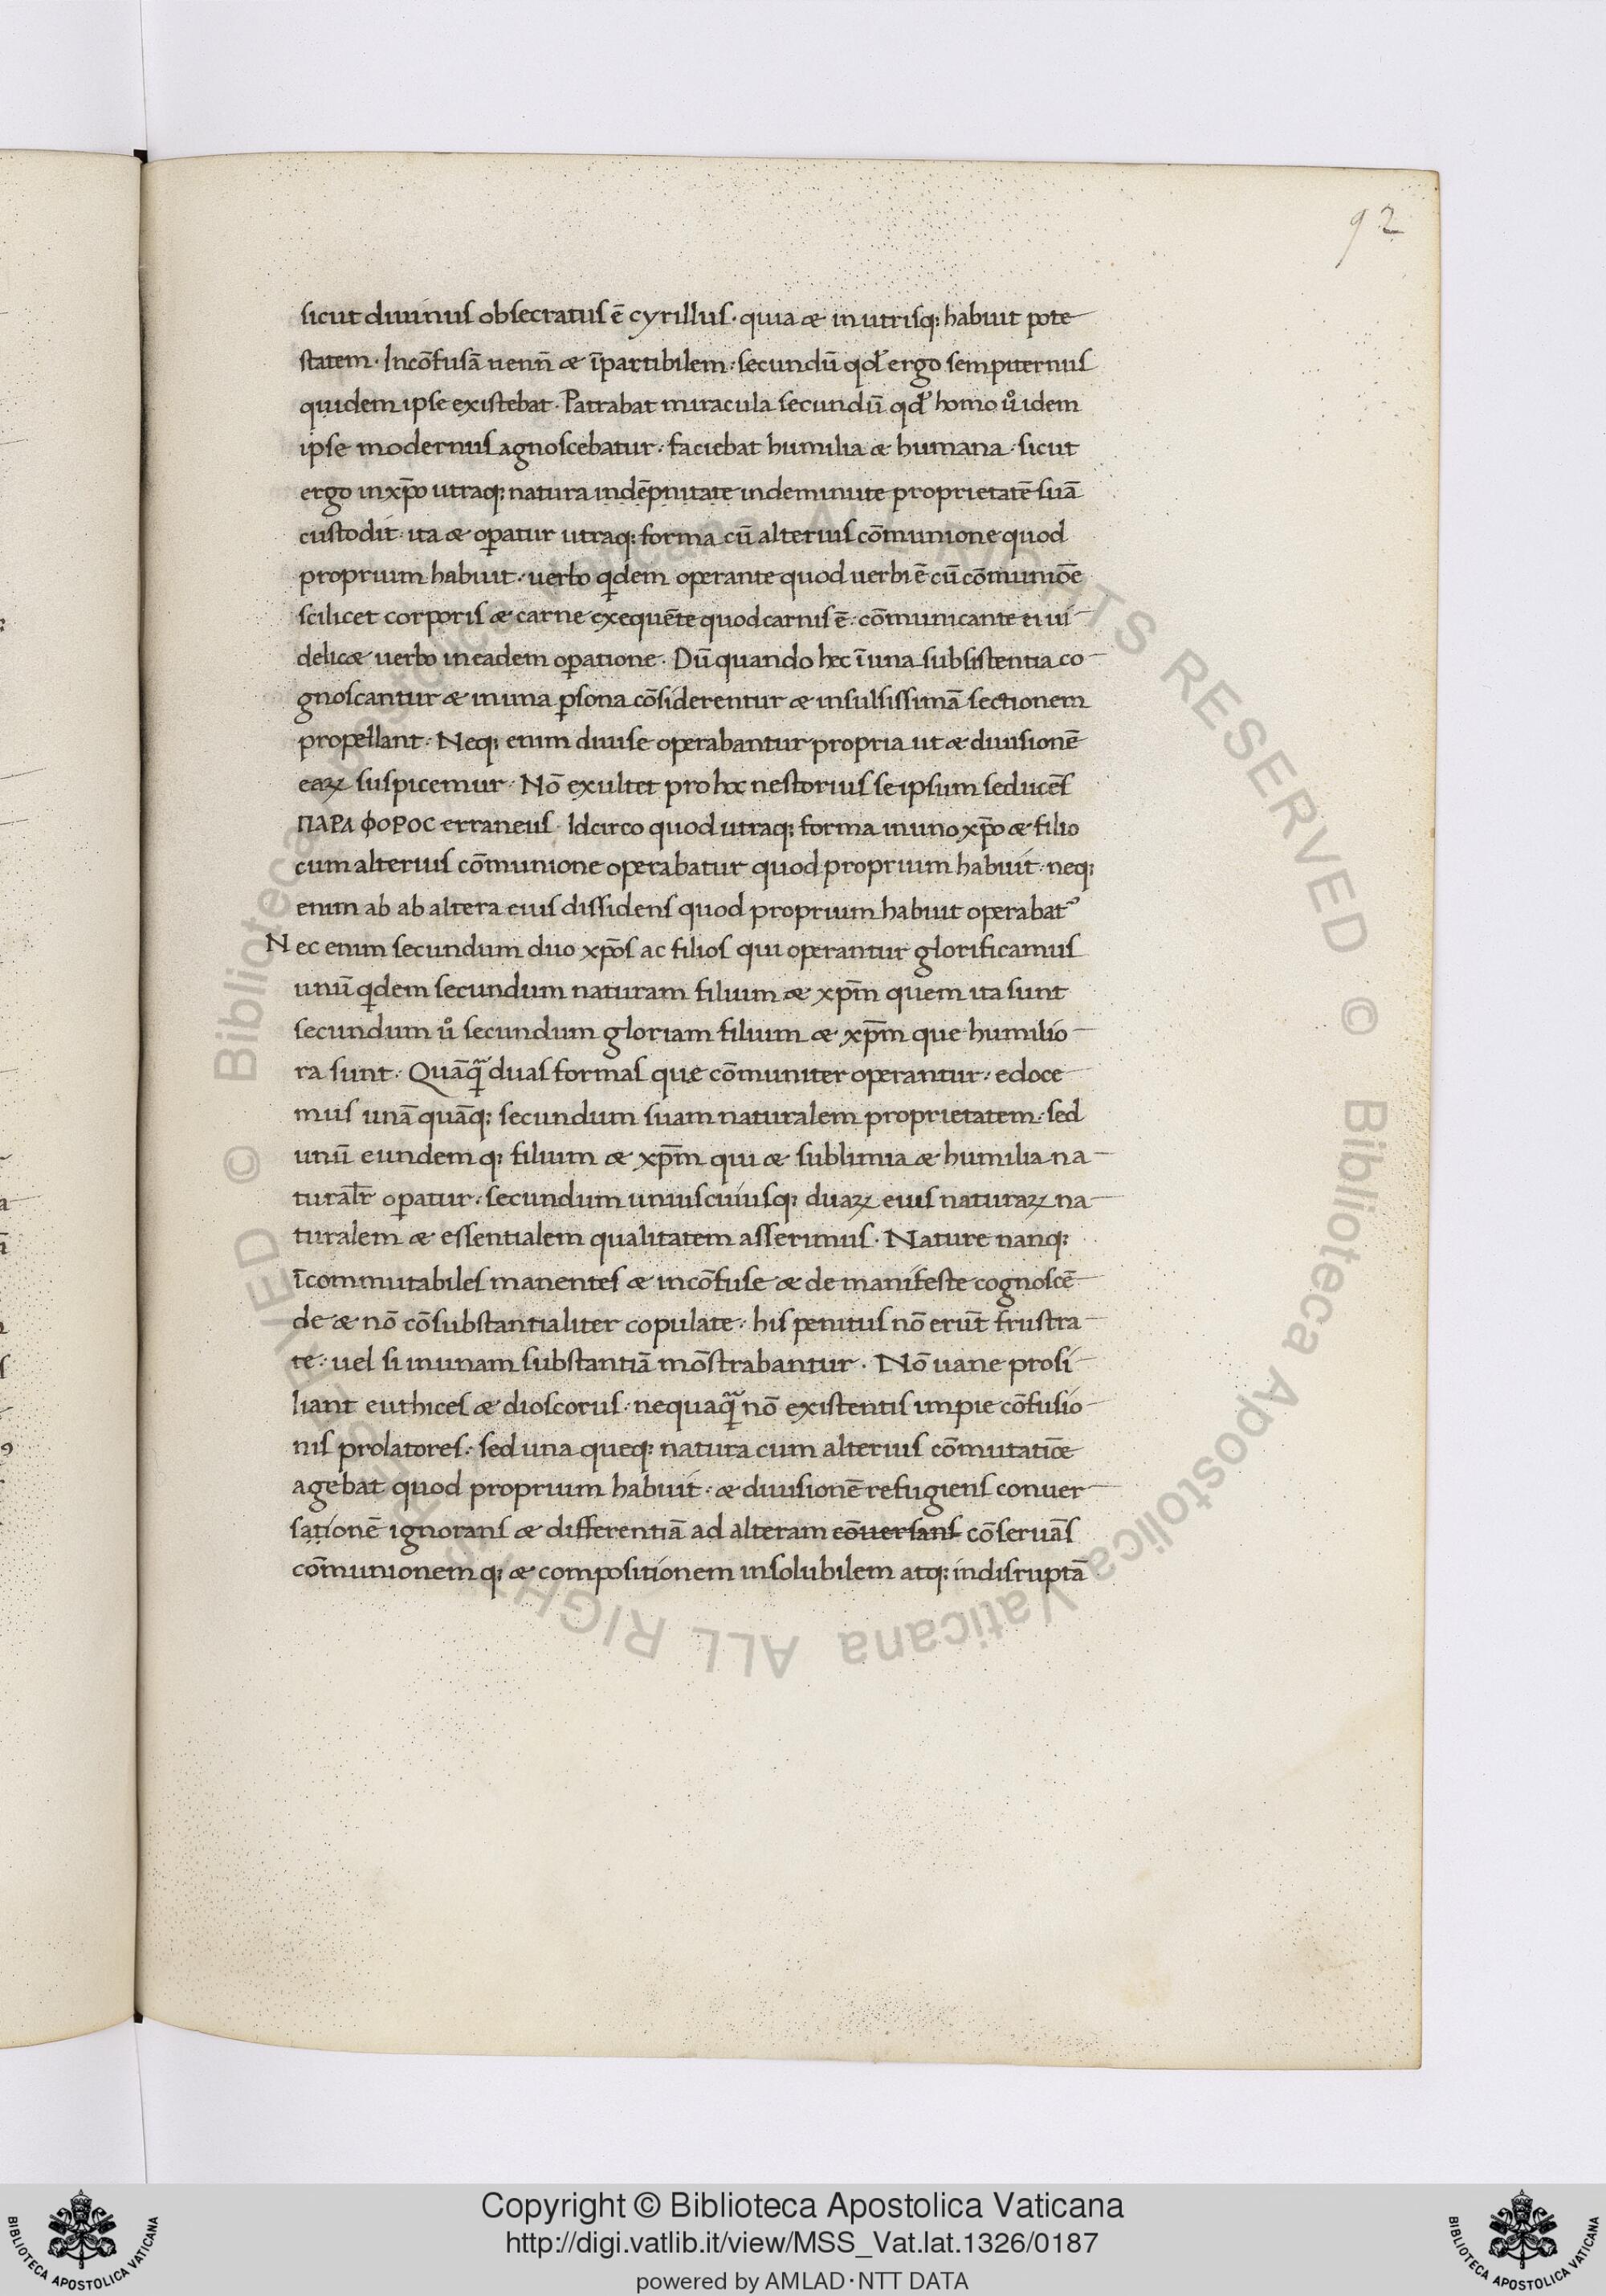 92
sicut diuinus obsecratus ē cyrillus · quia & in utrisq; habuit pote
statem · Incōfusā uenn̄ & īpartibilem · secundū qđ ergo sempiternus
quidem ipse existebat · Patrabat miracula secundū qđ homo ůidem
ipse modernus agnoscebatur · faciebat humilia & humana · sicut
ergo in xp̄o utraq; natura indēpnitate indeminute proprietatē suā
custodit · ita & op̄atur utraq; forma cū alterius cōmunione quod
proprium habuit · uerbo qͥdem operante quod uerbi ē cū cōmuniōe
scilicet corporis & carne exequēte quod carnis ē · cōmunicante ei ui
delic& uerbo in eadem op̄atione · Dū quando hec ī una subsistentia co
gnoscantur & in una p̄sona cōsiderentur & insulsissimā sectionem
propellant · Neq; enim diuise operabantur propria ut & diuisionē
eaꝝ suspicemur · Nō exultet pro hoc nestorius se ipsum seducēs
ΠΑΡΑ ΦΟΡΟС erraneus · Idcirco quod utraq; forma in uno xp̄o & filio
cum alterius cōmunione operabatur quod proprium habuit · neq;
enim ab ab altera eius dissidens quod proprium habuit operabat᷒
Nec enim secundum duo xp̄os ac filios qui operantur glorificamus
unū qͥdem secundum naturam filium & xp̄m quem ita sunt
secundum ů secundum gloriam filium & xp̄m que humilio
ra sunt · Quāqͣ duas formas que cōmuniter operantur · edoce
mus unā quāq; secundum suam naturalem proprietatem · sed
unū eundem q; filium & xp̄m qui & sublimia & humilia na
turalr̄ op̄atur · secundum uniuscuiusq; duaꝝ eius naturaꝝ na
turalem & essentialem qualitatem asserimus · Nature nanq;
īcommutabiles manentes & incōfuse & de manifeste cognoscē
de & nō cōsubstantialiter copulate · his penitus nō erūt frustra
te · uel si in unam substantiā mōstrabantur · Nō uane prosi
liant euthices & dioscorus · nequaqͣ nō existentis impie cōfusio
nis prolatores · sed una queq; natura cum alterius cōmutatiōe
agebat quod proprium habuit · & diuisionē refugiens conuer
sationē ignorans & differentiā ad alteram cōuersans cōseruās
cōmunionem q; & compositionem insolubilem atq; indisruptā
Copyright © Biblioteca Apostolica Vaticana
http://digi.vatlib.it/view/MSS_Vat.lat.1326/0187
powered by AMLAD·NTT DATA